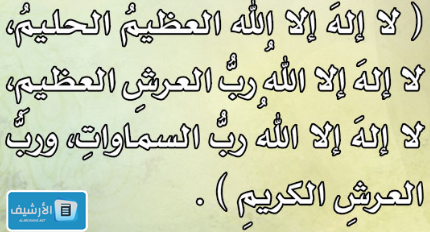 ( لا إلهَ إلا اللهُ العظيمُ الحليمُ،
لا إلهَ إلا اللهُ ربُّ العرشِ العظيمِ،
لا إلهَ إلا اللهُ ربُّ السماواتِ، وربَّ
العرشِ الكريمِ ) .
الأرشيف